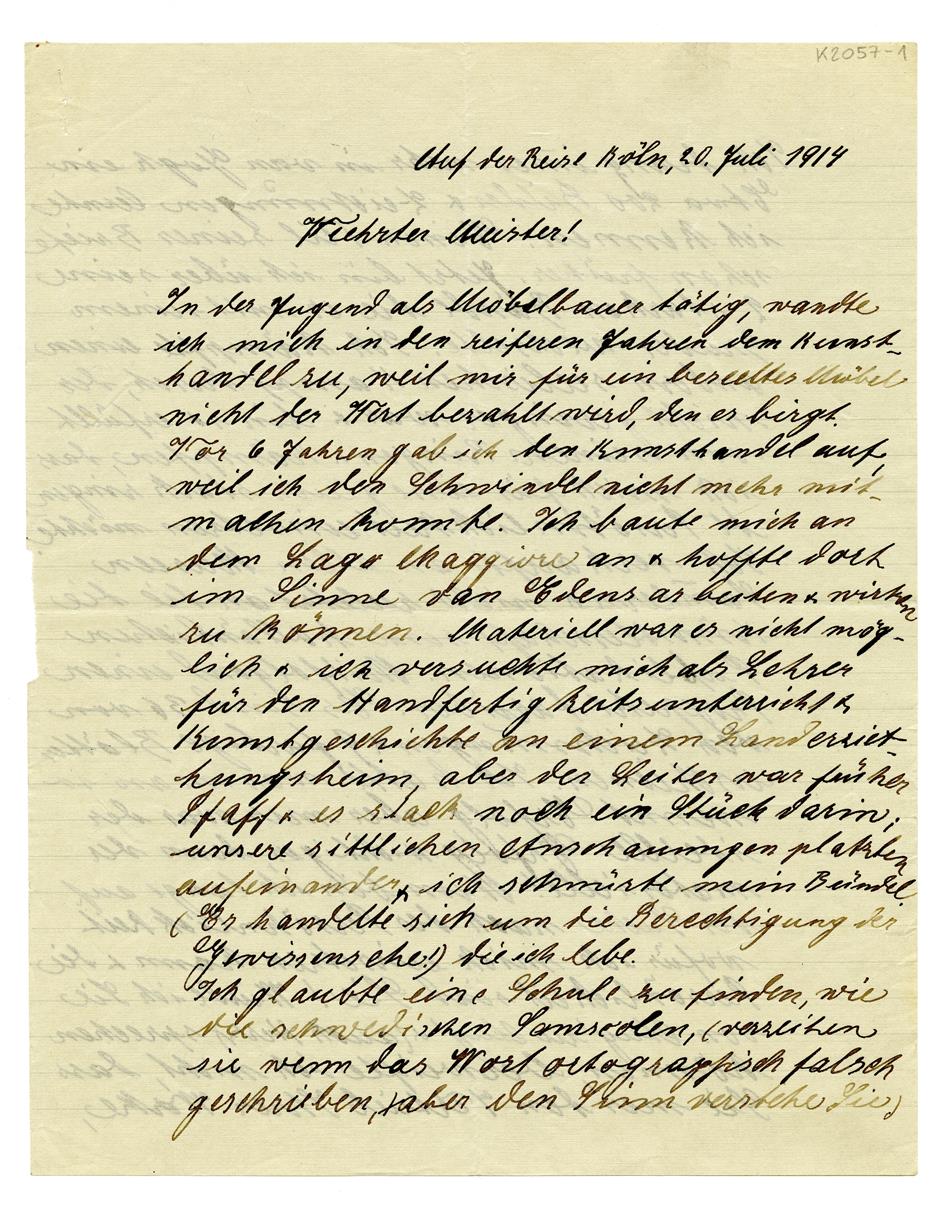 K2057-1
Auf der Reise Köln, 20. Juli 1914
Verehrter Meister!
In der Jugend als Möbelbauer tätig, wandte
ich mich in den reiferen Jahren dem Kunst-
handel zu, weil mir für ein beseeltes Möbel
nicht der Wert bezahlt wird, den es birgt.
Vor 6 Jahren gab ich den Kunsthandel auf,
weil ich den Schwindel nicht mehr mit-
machen konnte. Ich baute mich an
dem Lago Maggiore an & hoffte dort
im Sinne van Edens arbeiten & wirken
zu können. Materiell war es nicht mög-
lich & ich versuchte mich als Lehrer
für den Handfertigkeitsunterricht &
Kunstgeschichte an einem Landerzieh-
hungsheim, aber der Leiter war früher
Pfaff & es stack noch ein Stück darin;
unsere sittlichen Anschauungen platzten
aufeinander & ich schnürte mein Bündel.
(Es handelte sich um die Berechtigung der
Gewissensehe!) die ich lebe.
Ich glaubte eine Schule zu finden, wie
die schwedischen Samscolen, (verzeihen
sie wenn das Wort ortographisch falsch
geschrieben, aber den Sinn verstehe Sie)